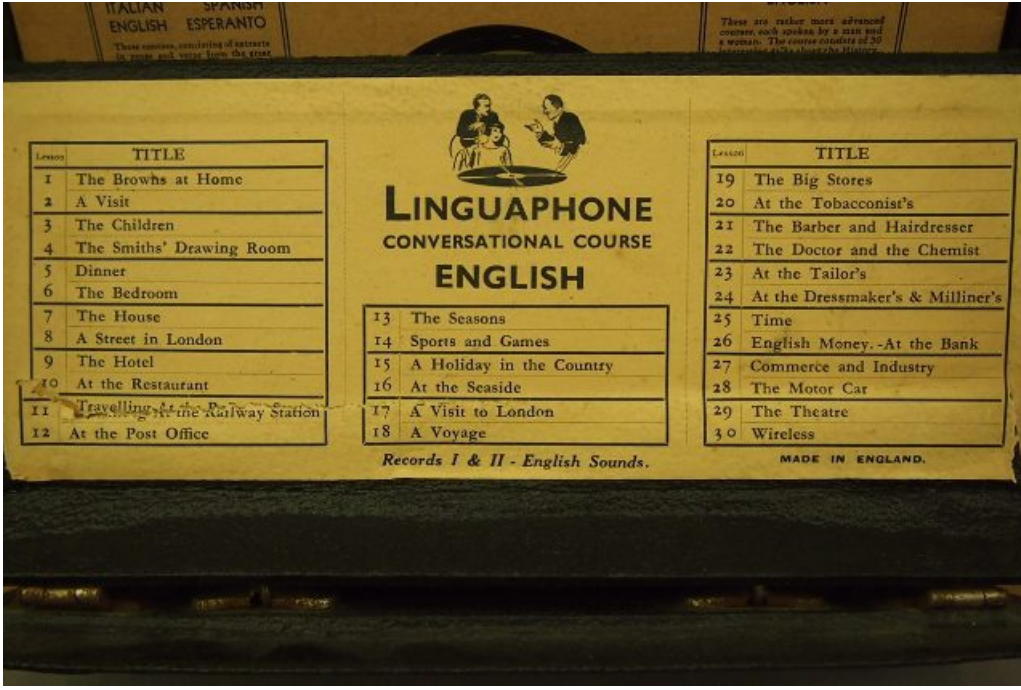 ITALIAN SPANISH
ENGLISH ESPERANTO
These courses, consisting of extracts
in prose and verse from the great
ENGLISH
These are rather more advanced
courses, each spoken by a man and
a woman. The course consists of 30
interesting talks about the History,
Lesson TITLE
1 The Browns at Home
2 A Visit
3 The Children
4 The Smiths' Drawing Room
5 Dinner
6 The Bedroom
7 The House
8 A Street in London
9 The Hotel
10 At the Restaurant
11 Travelling-At the Railway Station
12 At the Post Office
LINGUAPHONE
CONVERSATIONAL COURSE
ENGLISH
13 The Seasons
14 Sports and Games
15 A Holiday in the Country
16 At the Seaside
17 A Visit to London
18 A Voyage
Records I & II - English Sounds.
Lesson TITLE
19 The Big Stores
20 At the Tobacconist's
21 The Barber and Hairdresser
22 The Doctor and the Chemist
23 At the Tailor's
24 At the Dressmaker's & Milliner's
25 Time
26 English Money.-At the Bank
27 Commerce and Industry
28 The Motor Car
29 The Theatre
30 Wireless
MADE IN ENGLAND.